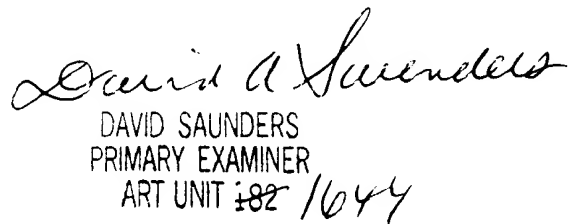 David A Saunders
DAVID SAUNDERS
PRIMARY EXAMINER
ART UNIT 182 1644